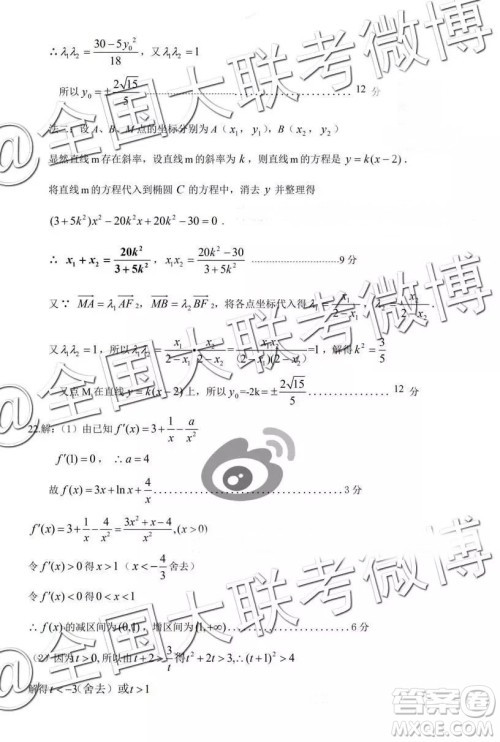 ∴ λ₁λ₂ = (30-5y₀²)/18, 又 λ₁λ₂ = 1
所以 y₀ = ± 2√15/5 ........................ 12 分
设 A、B、M 点的坐标分别为 A（x₁, y₁）, B（x₂,
显然直线 m 存在斜率, 设直线 m 的斜率为 k, 则直线 m 的方程是 y = k(x-2).
将直线 m 的方程代入到椭圆 C 的方程中, 消去 y 并整理得
(3+5k²)x² - 20k²x + 20k² - 30 = 0.
∴ x₁ + x₂ = 20k²/(3+5k²), x₁x₂ = (20k²-30)/(3+5k²) ........................ 9 分
又∵ MA = λ₁AF₂, MB = λ₂BF₂, 将各点坐标代入得 λ₁ = x₁/(2-x₁),
又 λ₁λ₂ = 1, 所以 x₁/(2-x₁) · x₂/(2-x₂) = x₁x₂/((2-x₁)(2-x₂)) = 1, 解得 k² = 3/5
又点 M 在直线 y = k(x-2) 上, 所以 y₀ = -2k = ± 2√15/5 ............ 12 分
22.解：（1）由已知 f′(x) = 3 + 1/x - a/x²
f′(1) = 0, ∴ a = 4
故 f(x) = 3x + ln x + 4/x ........................ 3 分
f′(x) = 3 + 1/x - 4/x² = (3x²+x-4)/x², (x > 0)
令 f′(x) > 0 得 x > 1（x < -4/3 舍去）
令 f′(x) < 0 得 0 < x < 1
∴ f(x) 的减区间为 (0,1), 增区间为 (1,+∞) ........................ 6 分
（2）因为 t > 0, 所以由 t + 2 > 3/t 得 t² + 2t > 3, ∴ (t+1)² > 4
解得 t < -3（舍去）或 t > 1
全国大联考微博
全国大联考微博